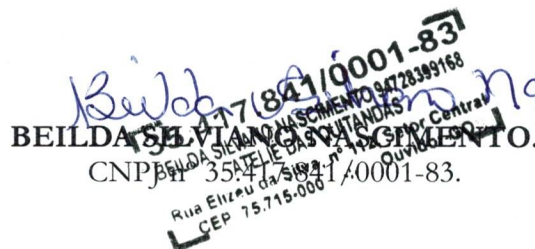 Beilda Silviano Na
35.417.841/0001-83
BEILDA SILVIANO NASCIMENTO 94728399168
ATELIE DAS QUITANDAS
Rua Elizeu da Silva, nº Setor Central
CEP 75.715-000 Ouvidor-GO
BEILDA SILVIANO NASCIMENTO.
CNPJ nº 35.417.841/0001-83.